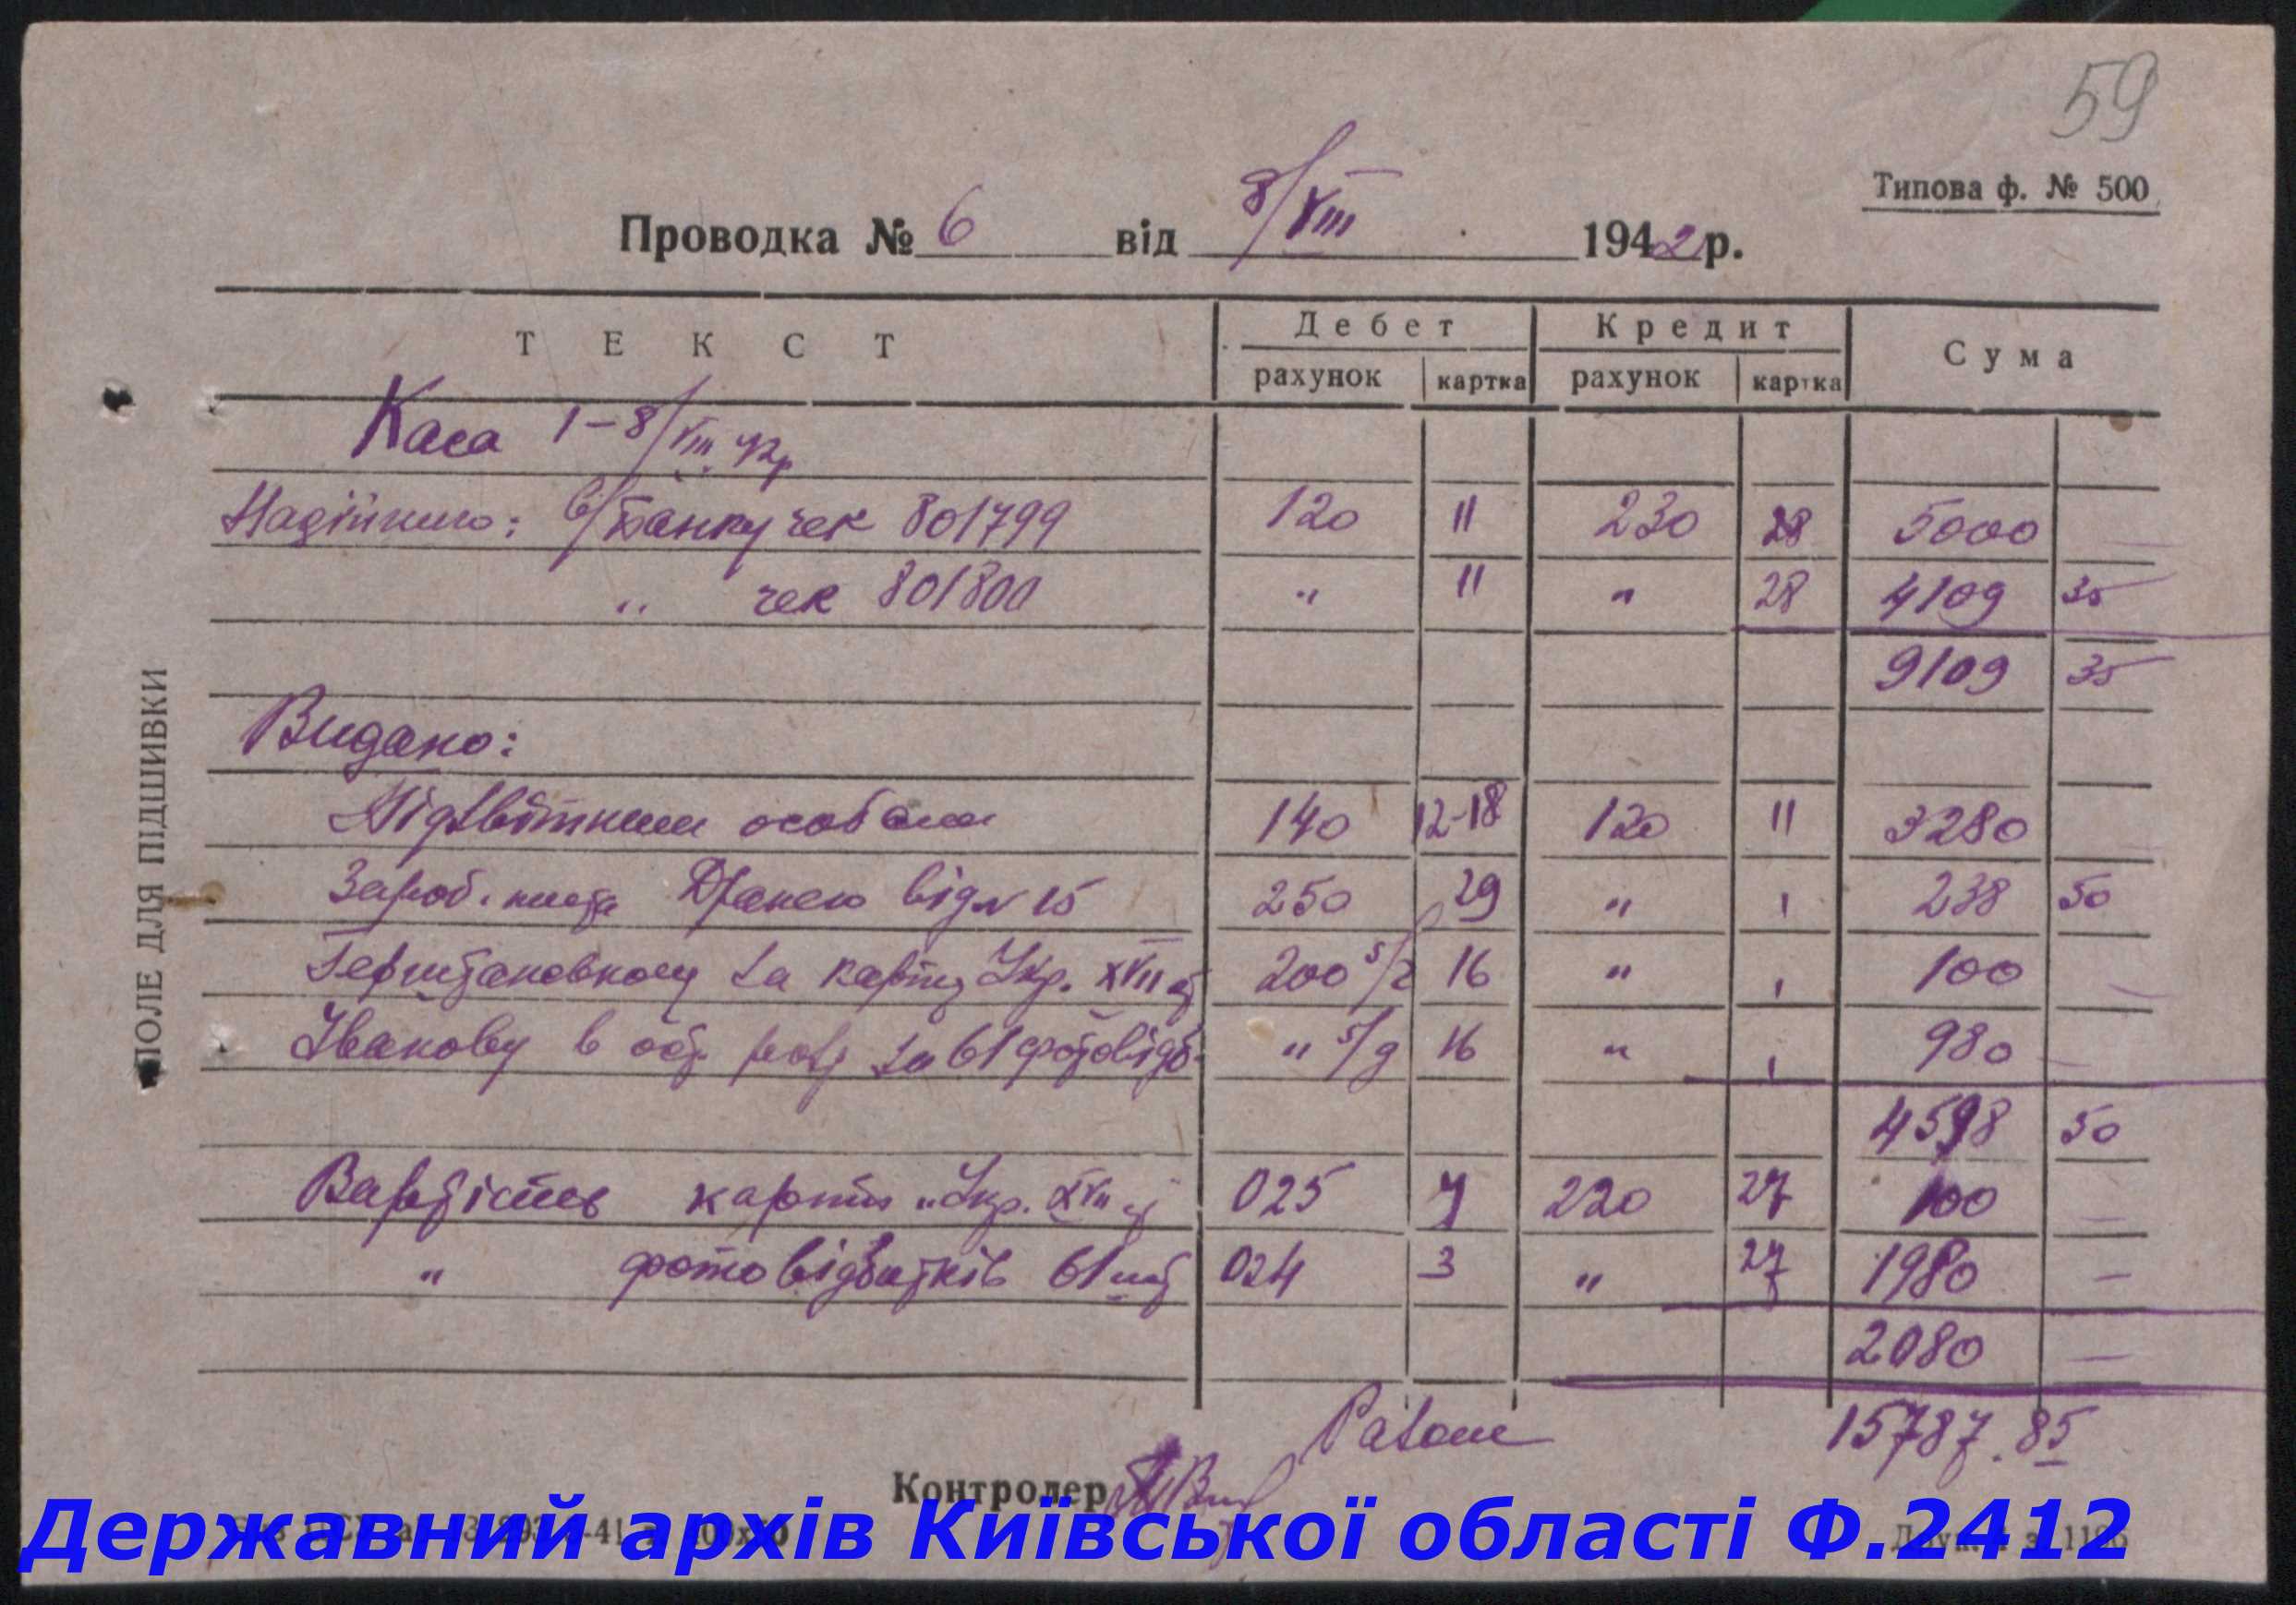 59
Типова ф. № 500
Проводка № 6 від 8/VIII 1942 р.
ТЕКСТ Дебет Кредит Сума
рахунок картка рахунок картка
Каса 1-8/VIII 42р
Надійшло: в/банку чек 801799 120 11 230 28 5000 —
" чек 801800 " 11 " 28 4109 35
9109 35
Видано:
Підзвітним особам 140 12-18 120 11 3280
Зароб. плата відом 15 250 29 " ' 238 50
за карту Укр. XVII 200 16 " ' 100 —
Іванову в за 61 фотовідб. " 16 " ' 980 —
4598 50
Вартість карти „Укр. XVII 025 7 220 27 100 —
" фотовідбитків 61 шт 024 3 " 27 1980 —
2080 —
Разом 15787.85
Контролер
ПОЛЕ ДЛЯ ПІДШИВКИ
Державний архів Київської області Ф.2412